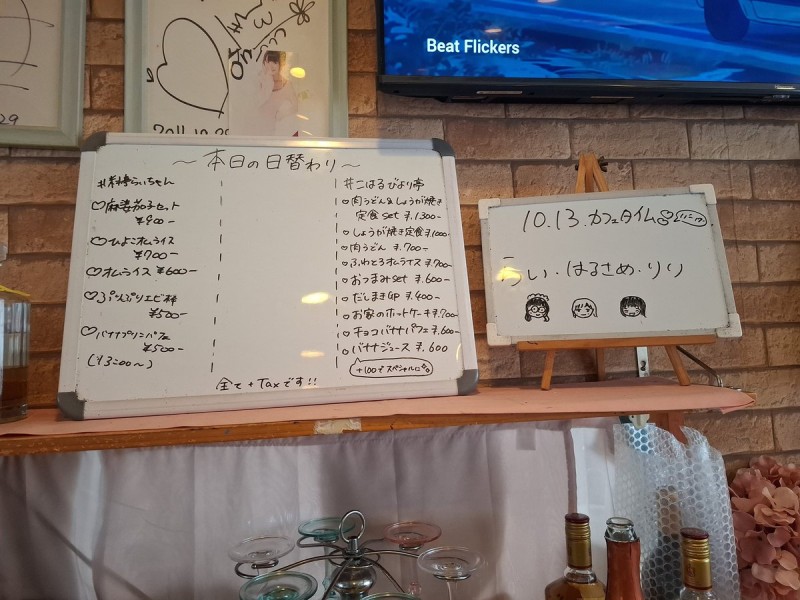 Beat Flickers
29
2011.10.29
～本日の日替わり～
らいちゃん
♡麻婆茄子セット
¥900-
♡ひよこオムライス
¥700-
♡オムライス ¥600-
♡ぷりぷりエビ
¥500-
♡バナナプリンパフェ
¥500-
(13:00〜)
#こはるびより亭
♡肉うどん&しょうが焼き
定食 set ¥.1300-
♡しょうが焼き定食 ¥.1000-
♡肉うどん ¥.700-
♡ふわとろオムライス ¥.700-
♡おつまみ set ¥.600-
♡だしまき 4P ¥.400-
♡お家のホットケーキ ¥.700-
♡チョコバナナパフェ ¥.600-
♡バナナジュース ¥.600
+100でスペシャルに
全て+Taxです!!
10.13.カフェタイム
らい・はるさめ・りり